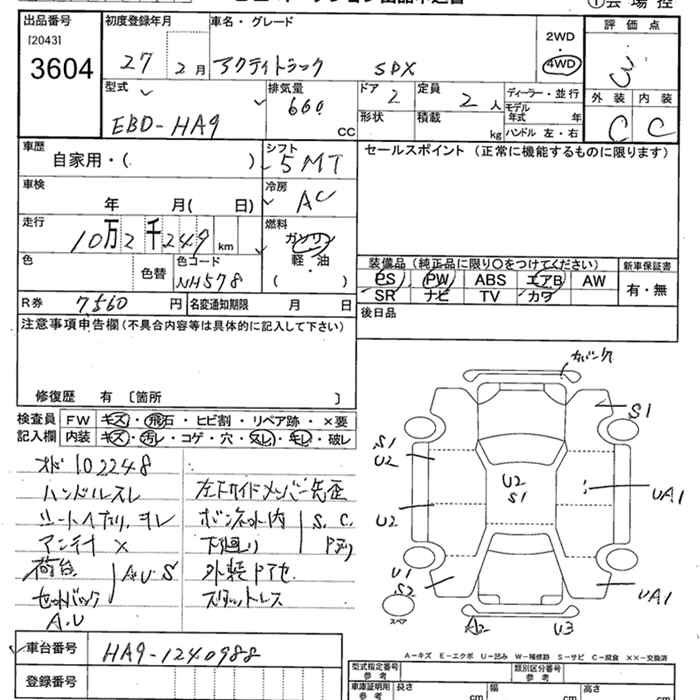 出品番号
[2043]
3604
初度登録年月
27 2月
車名・グレード
アクティトラック SDX
2WD
4WD
評価点
3
外装 内装
C C
型式
EBD-HA9
排気量
660 CC
ドア
2
定員
2人
形状
積載
kg
ディーラー・並行
モデル年式 年
ハンドル 左・右
車歴
自家用・( )
シフト
5MT
セールスポイント(正常に機能するものに限ります)
車検
年 月( 日)
冷房
AC
走行
10万2千249km
燃料
ガソリン
軽・油
( )
色
色替
色コード
NH578
装備品(純正品に限り〇をつけてください)
PS PW ABS エアB AW
SR ナビ TV カワ
新車保証書
有・無
R券
7560円
名変通知期限 月 日
後日品
注意事項申告欄(不具合内容等は具体的に記入して下さい)
修復歴 有 [箇所 ]
検査員記入欄
FW キズ・飛石・ヒビ割・リペア跡・×要
内装 キズ・汚レ・コゲ・穴・欠レ・モレ・破レ
オド 102248
ハンドルスレ
アンテナ ×
荷台
セットバック
AUS
A.U
左下サイドメンバー先歪
ボンネット内
下廻り
S.C.
外装
スタットレス
カバー欠
S1
S1
U2
U2
U2
S1
UA1
U1
S2
UA1
A2
U3
スペア
A-キズ E-エクボ U-凹み W-補修跡 S-サビ C-腐食 ××-交換済
車台番号
HA9-1240988
登録番号
型式指定番号
参考
類別区分番号
参考
車庫証明用
参考
長さ cm
幅 cm
高さ cm